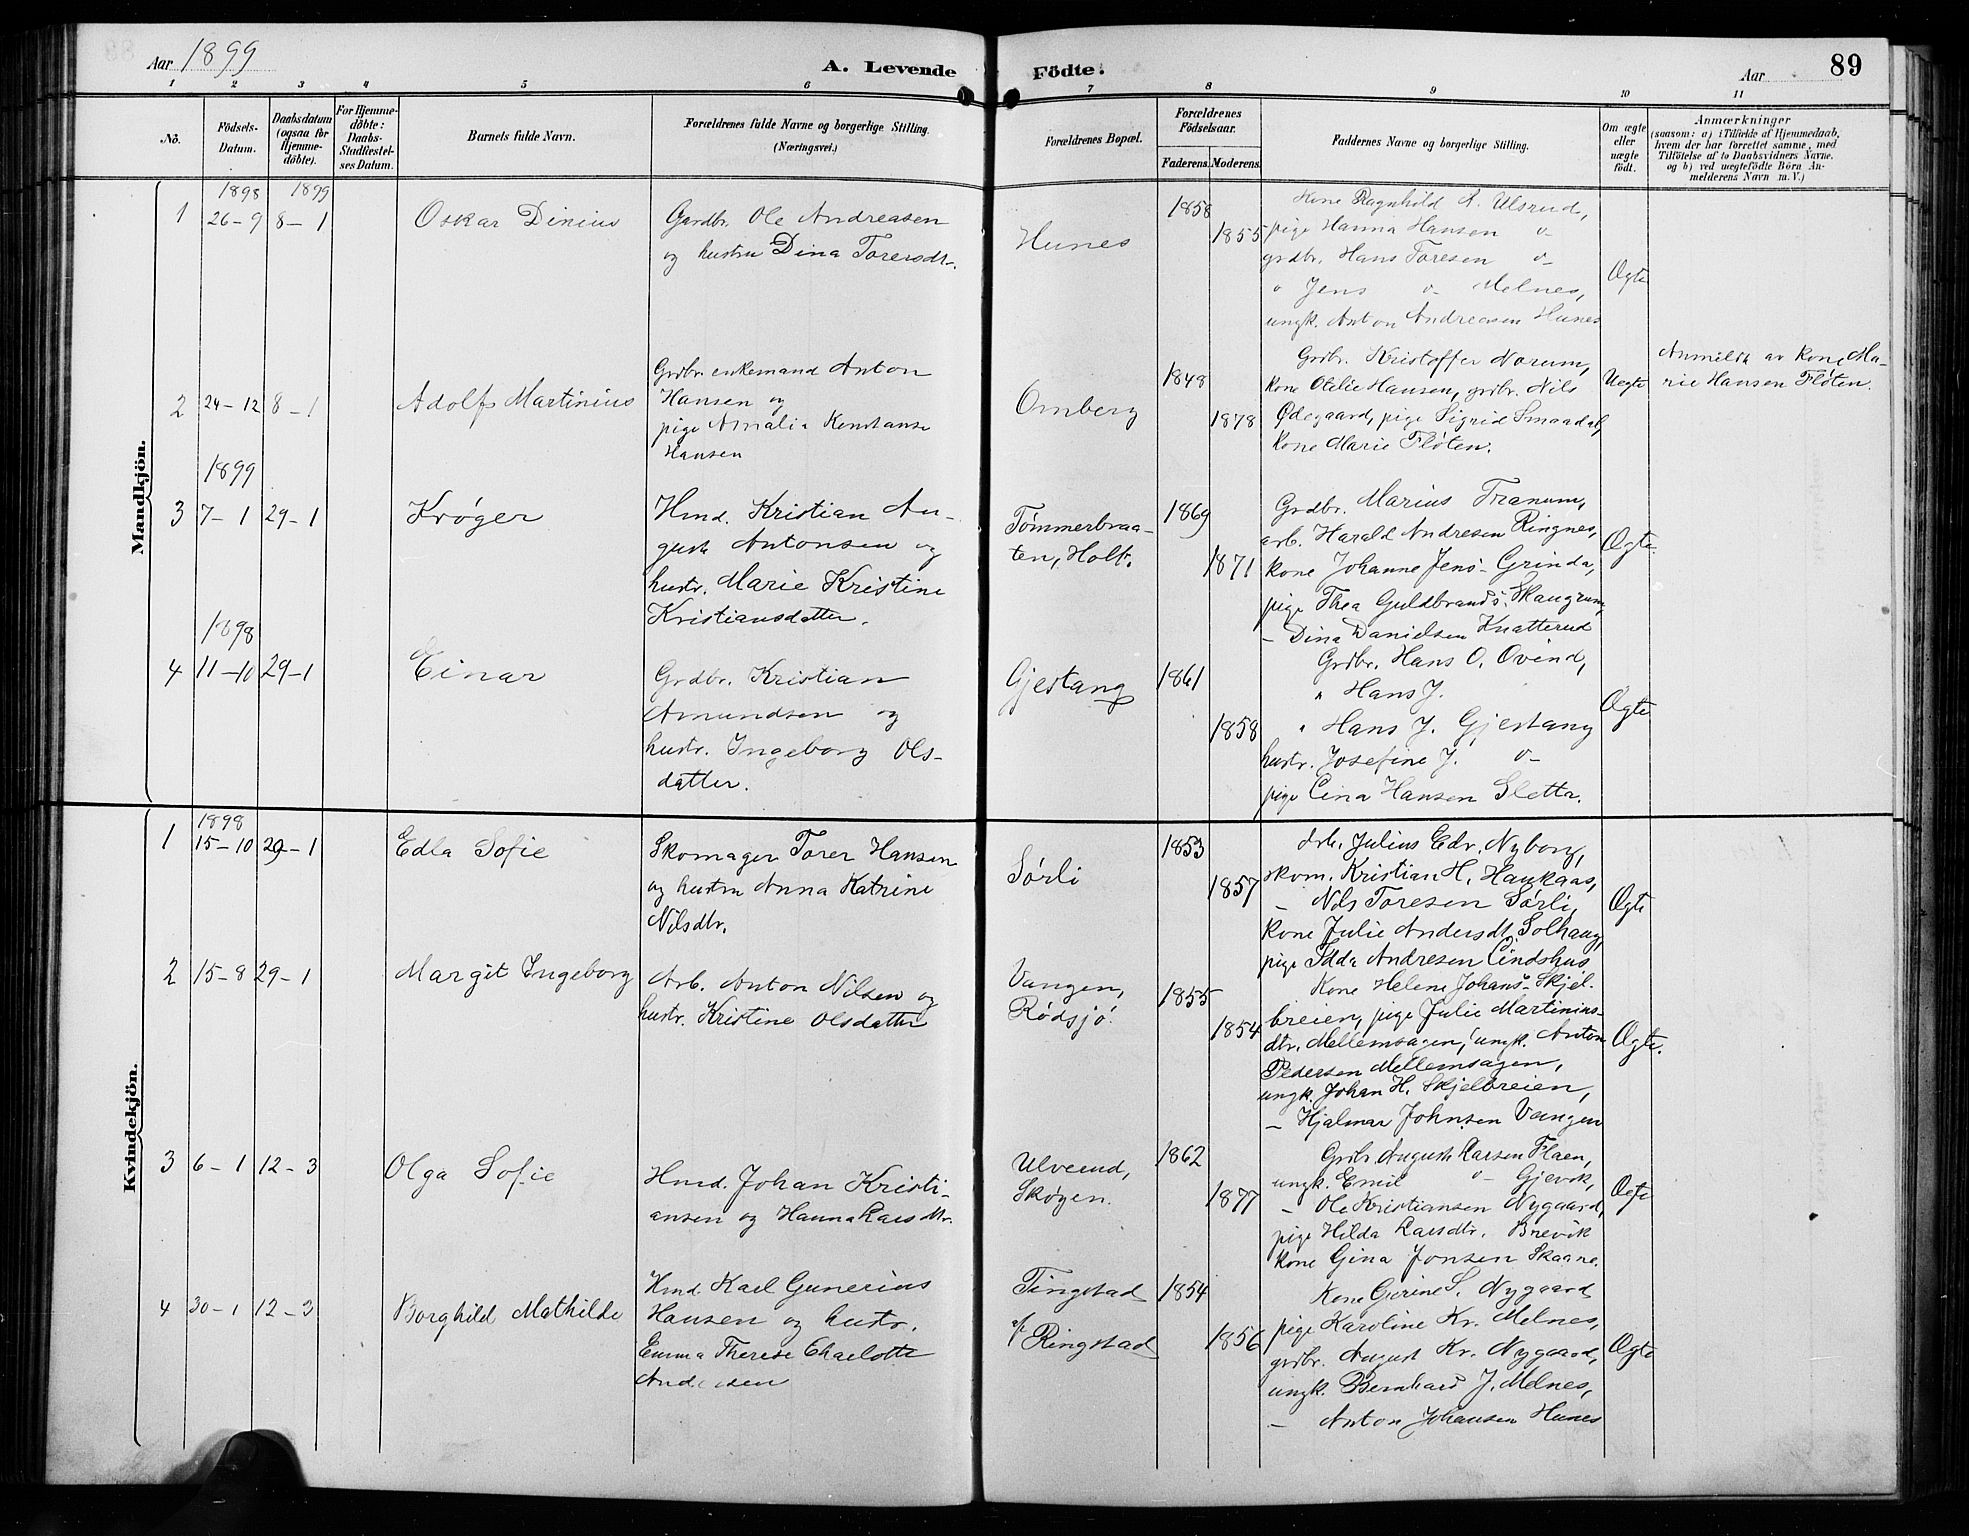 Aar 1899
A. Levende
Födte.
Aar
89
1 2 3 4 5 6 7 8 9 10 11
No.
Födsels-
Datum.
Daabsdatum
(ogsaa for
Hjemme-
döbte).
For Hjemme-
döbte:
Daabs-
Stadfæstel-
ses Datum.
Barnets fulde Navn.
Forældrenes fulde Navne og borgerlige Stilling.
(Næringsvei.)
Forældrenes Bopæl.
Forældrenes
Födselsaar.
Faderens. Moderens.
Faddernes Navne og borgerlige Stilling.
Om ægte
eller
uægte
födt.
Anmærkninger
(saasom: a) i Tilfælde af Hjemmedaab,
hvem der har forrettet samme, med
Tilföielse af to Daabsvidners Navne,
og b) ved uægtefödte Börn An-
melderens Navn m. V.)
Mandkjön.
1898 1899
1 26-9 8-1
Oskar Dinius
Gardbr. Ole Andreasen
og hustru Dina Toresdt.
Hunes
1858
1855
Kone Ragnhild A. Ulsrud,
pige Hanna Hansen o-
grdbr. Hans Toresen o-
" Jens o- Melnes,
ungk. Anton Andreasen Hunes
Ægte
2 24-12 8-1
Adolf Martinius
Grdbr. enkemand Anton
Hansen og
pige Amalia Konstanse
Hansen
Omberg
1848
1878
Grdb. Kristoffer Norum,
kone Otelie Hansen, grdbr. Nils
Ødegaard, pige Sigrid Smaadal,
kone Marie Fløten.
Uegte
Anmeldt av kone Ma-
rie Hansen Fløten.
1899
3 7-1 29-1
Krøger
Hmd. Kristian Au-
gust Antonsen og
hustr. Marie Kristine
Kristiansdatter.
Tømmerbraa-
ten, Holt.
1869
1871
Grdbr. Marius Tranum,
arb. Harald Andresen Ringnes,
kone Johanne Jens- Grinda,
pige Thea Guldbrands. Skaugrum,
- Dina Danielsen Knatterud
Ægte.
1898
4 11-10 29-1
Einar
Grdbr. Kristian
Amundsen og
hustr. Ingeborg Ols-
datter.
Gjestang
1861
1858
Grdbr. Hans O. Ovind,
" Hans J.
" Hans J. Gjestang
hustr. Josefine J. o-
pige Lina Hansen Sletta.
Ægte
Kvindekjön.
1898
1 15-10 29-1
Edla Sofie
Skomager Torer Hansen
og hustru Anna Katrine
Nilsdtr.
Sørli
1853
1857
Arb. Julius Edv. Nyborg,
skom. Kristian H. Haukaas,
- Nils Toresen Sørli,
kone Julie Andersdt. Solhaug,
pige Idda Andresen Lindshus
Ægte
2 15-8 29-1
Margit Ingeborg
Arb. Anton Nilsen og
hustr. Kristine Olsdatter
Vangen,
Rødsjø.
1855
1854
Kone Helene Johans- Skjel-
breien, pige Julie Martinius-
dtr. Mellemsagen, ungk. Anton
Pedersen Mellemsagen,
ungk. Johan H. Skjelbreien,
- Hjalmar Johnsen Vangen
Ægte.
3 6-1 12-3
Olga Sofie
Hmd. Johan Kristi-
ansen og Hanna Larsdtr.
Ulverud,
Skøyen.
1862
1877
Grdbr. August Larsen Flaen,
ungk. Emil o- Gjevik,
- Ole Kristiansen Nygaard,
pige Hilda Larsdtr. Brevik
kone Gina Jonsen Skaane.
Ægte
4 30-1 12-3
Borghild Mathilde
Hmd Karl Gunerius
Hansen og hustr.
Emma Therese Charlotte
Andersen
Tingstad
u/ Ringstad
1854
1856
Kone Gurine S. Nygaard
pige Karoline Kr. Melnes,
grdbr. August Kr. Nygaard,
ungk. Bernhard J. Melnes,
- Anton Johansen Hunes
Ægte